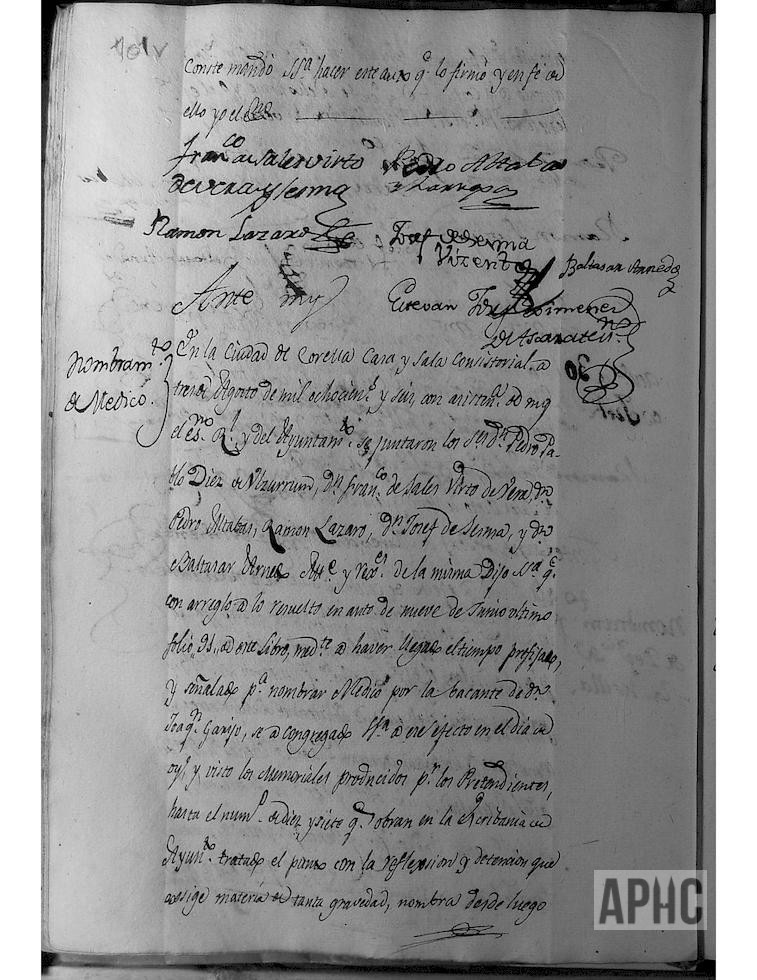 101v
Conste mandó SSª hacer este auto qᵉ lo firmó y en fé de
ello yo el Esno
Franco de Sales virto
de vera y Lesma
Pedro Altabas
Ramon Lazaro
Josef de Sesma
Vizente
Baltasar Arnedo
Ante my
Estevan Josef Ximenez
de Ascarate
Nombramto
de Medico.
En la Ciudad de Corella Casa y Sala Consistorial a
tres de Agosto de mil ochocienˢ y seis, con asistenª de mi
el esno Rl y del Ayuntamto se juntaron los Ses Dn Pedro Pa-
blo Diez de Ulzurrum, Dn Franco de Sales Virto de Vera, Dn
Pedro Altabas, Ramon Lazaro, Dn Josef de Sesma, y Dn
Baltasar Arnedo Alle y rexes de la misma Dijo SSª qᵉ
con arreglo a lo resuelto en auto de nueve de Junio ultimo
folio 91, de este Libro, medte a haver llegado el tiempo prefijado,
y señalado pª nombrar Medico por la bacante de Dn
Joaqn Garijo, se a congregado SSª a ese efecto en el dia de
oy, y visto los Memoriales producidos pr los Pretendientes,
hasta el numo de diez y siete qᵉ obran en la Escribania de
Ayunto tratado el punto con la reflexsion y detencion que
exsige materia de tanta gravedad, nombra desde luego
APHC